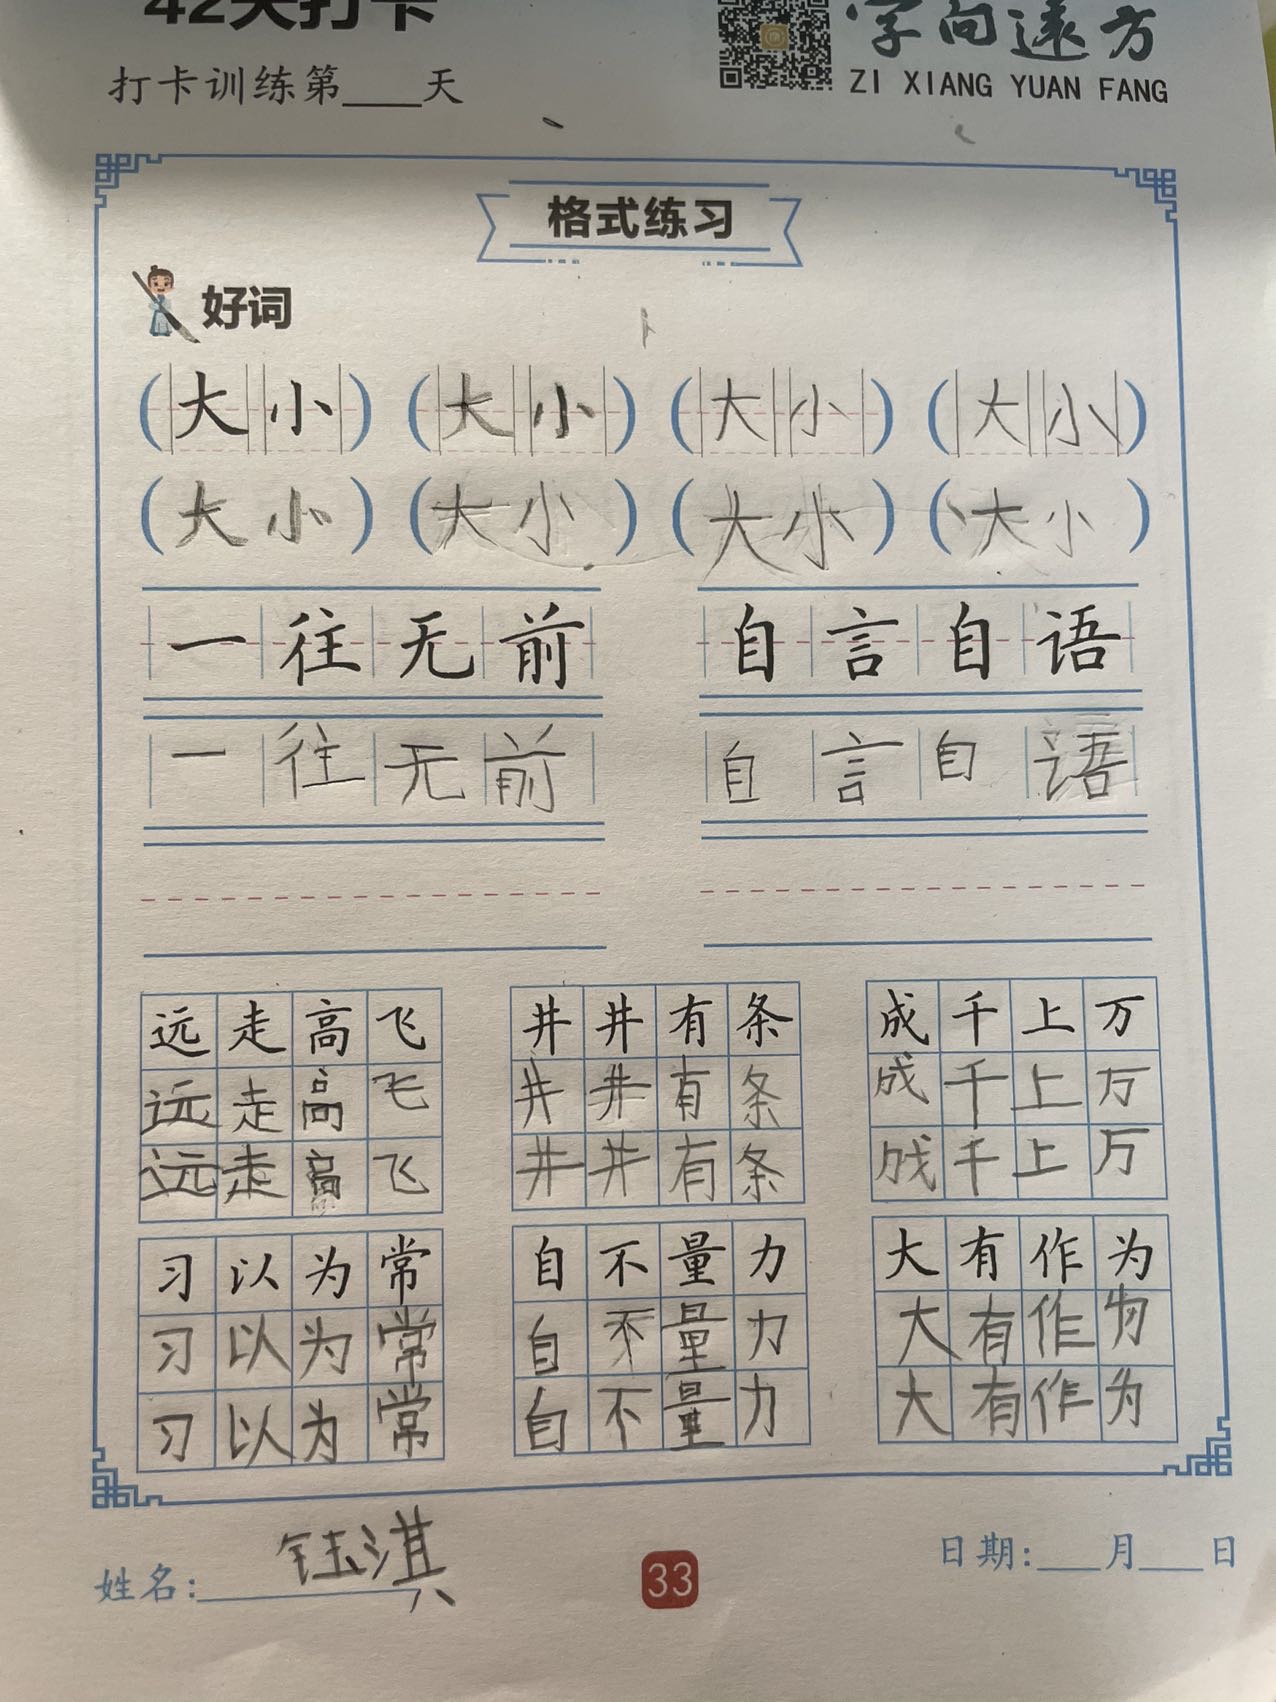 42天打卡
字向远方
打卡训练第____天
ZI XIANG YUAN FANG
格式练习
好词
(大小) (大小) (大小) (大小)
(大小) (大小) (大小) (大小)
一往无前 自言自语
一往无前 自言自语
远走高飞 井井有条 成千上万
远走高飞 井井有条 成千上万
远走高飞 井井有条 成千上万
习以为常 自不量力 大有作为
习以为常 自不量力 大有作为
习以为常 自不量力 大有作为
姓名:钰淇
33
日期:___月___日